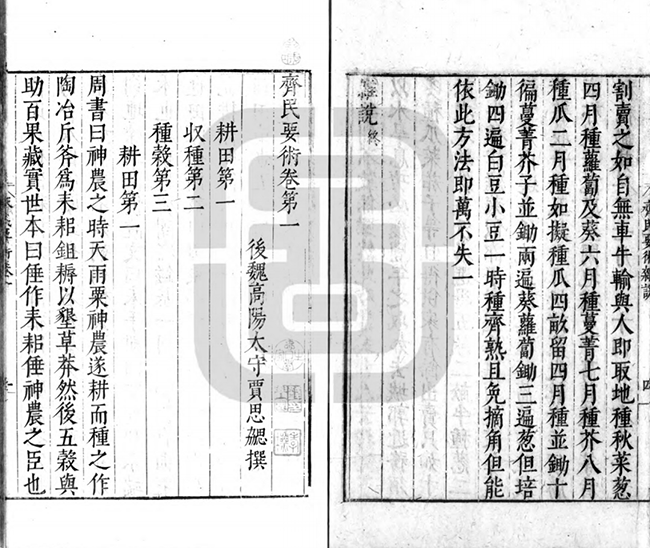 割賣之如自無車牛輸與人即取地種秋菜葱
四月種蘿蔔及葵六月種蔓菁七月種芥八月
種瓜二月種如擬種瓜四畝留四月種並鋤十
徧蔓菁芥子並鋤兩遍葵蘿蔔鋤三遍葱但培
鋤四遍白豆小豆一時種齊熟且免摘角但能
依此方法即萬不失一
雜說終
齊民要術卷第一
後魏高陽太守賈思勰撰
耕田第一
収種第二
種榖第三
耕田第一
周書曰神農之時天雨粟神農遂耕而種之作
陶冶斤斧爲耒耜鉏耨以墾草莽然後五榖與
助百果藏實世本曰倕作耒耜倕神農之臣也